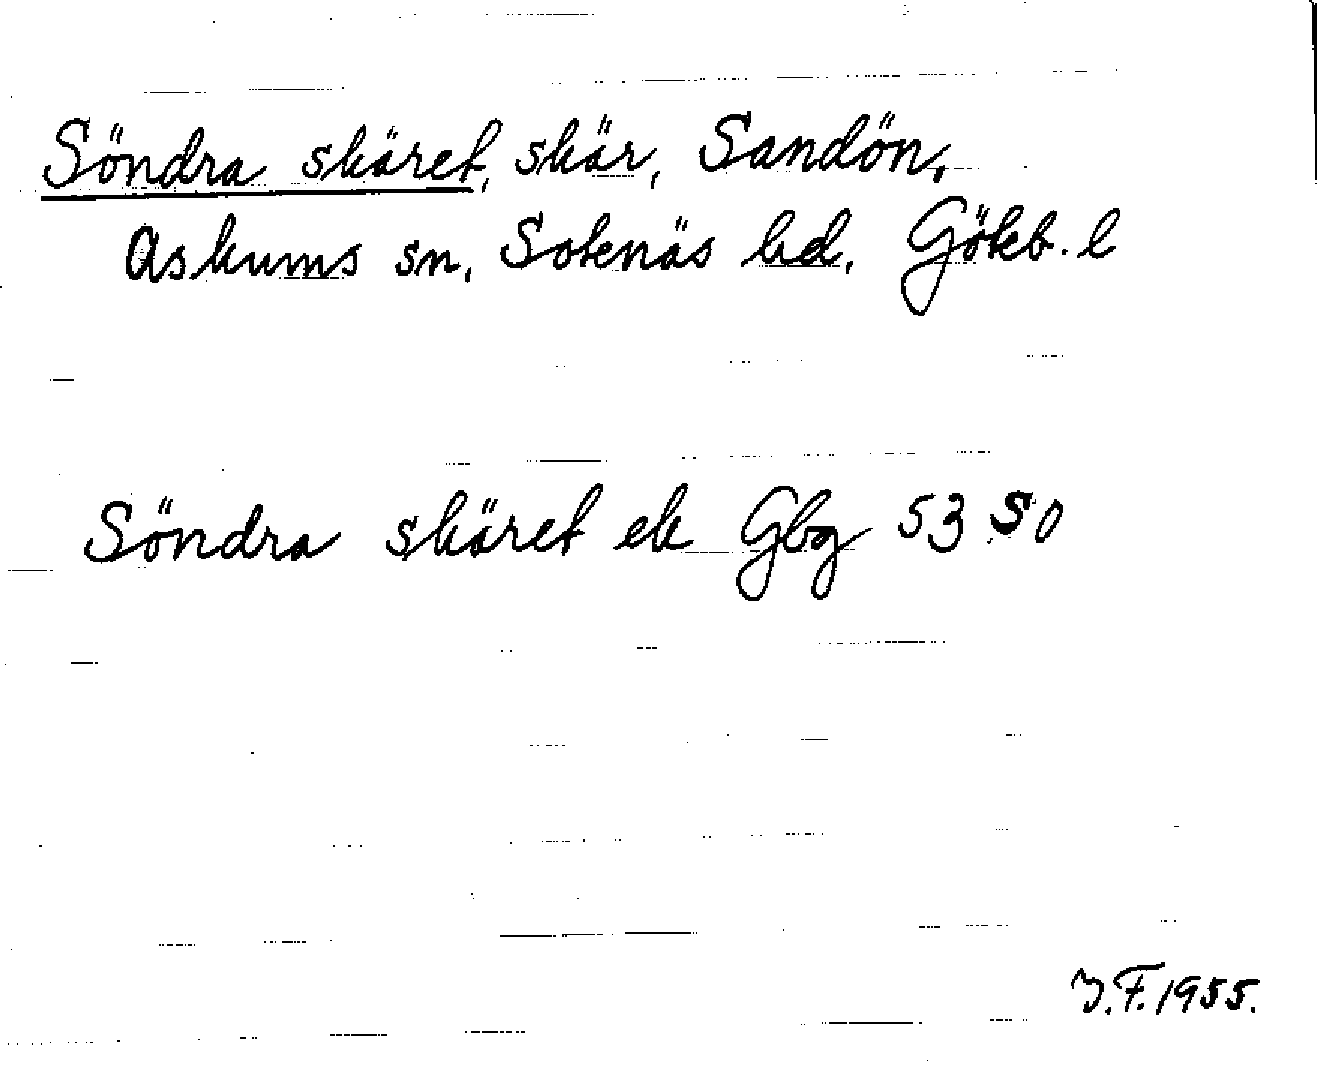 Söndra skäret, skär, Sandön,
Askums sn, Sotenäs hd, Göteb. l
Söndra skäret ek Gbg 53 50
J.F. 1955.